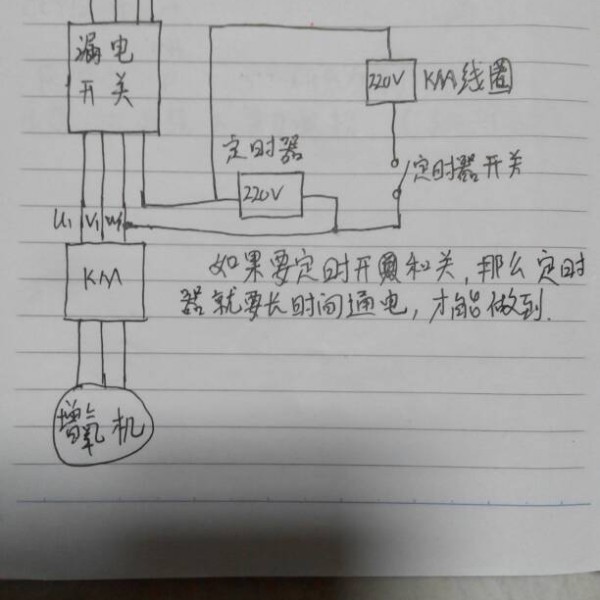 漏电
开关
220V
KM线圈
定时器
220V
定时器开关
U1 V1 W1
KM
如果要定时开和关,那么定时
器就要长时间通电,才能做到.
增氧机